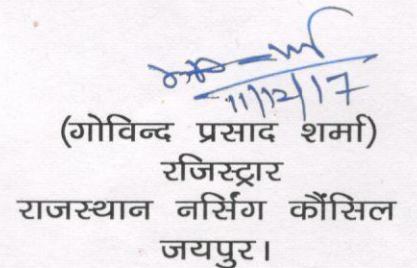 11/12/17
(गोविन्द प्रसाद शर्मा)
रजिस्ट्रार
राजस्थान नर्सिंग कौंसिल
जयपुर।